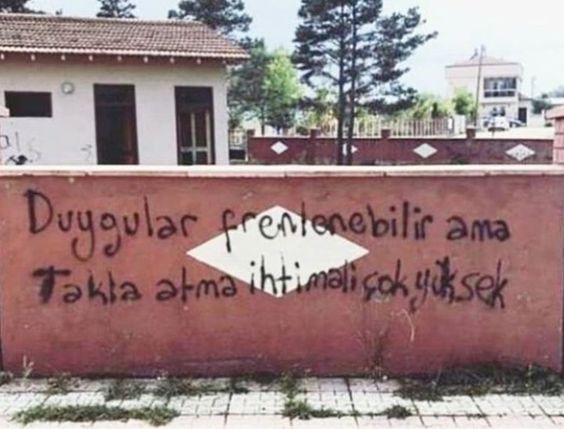 Duygular frenlenebilir ama
Takla atma ihtimali çok yüksek